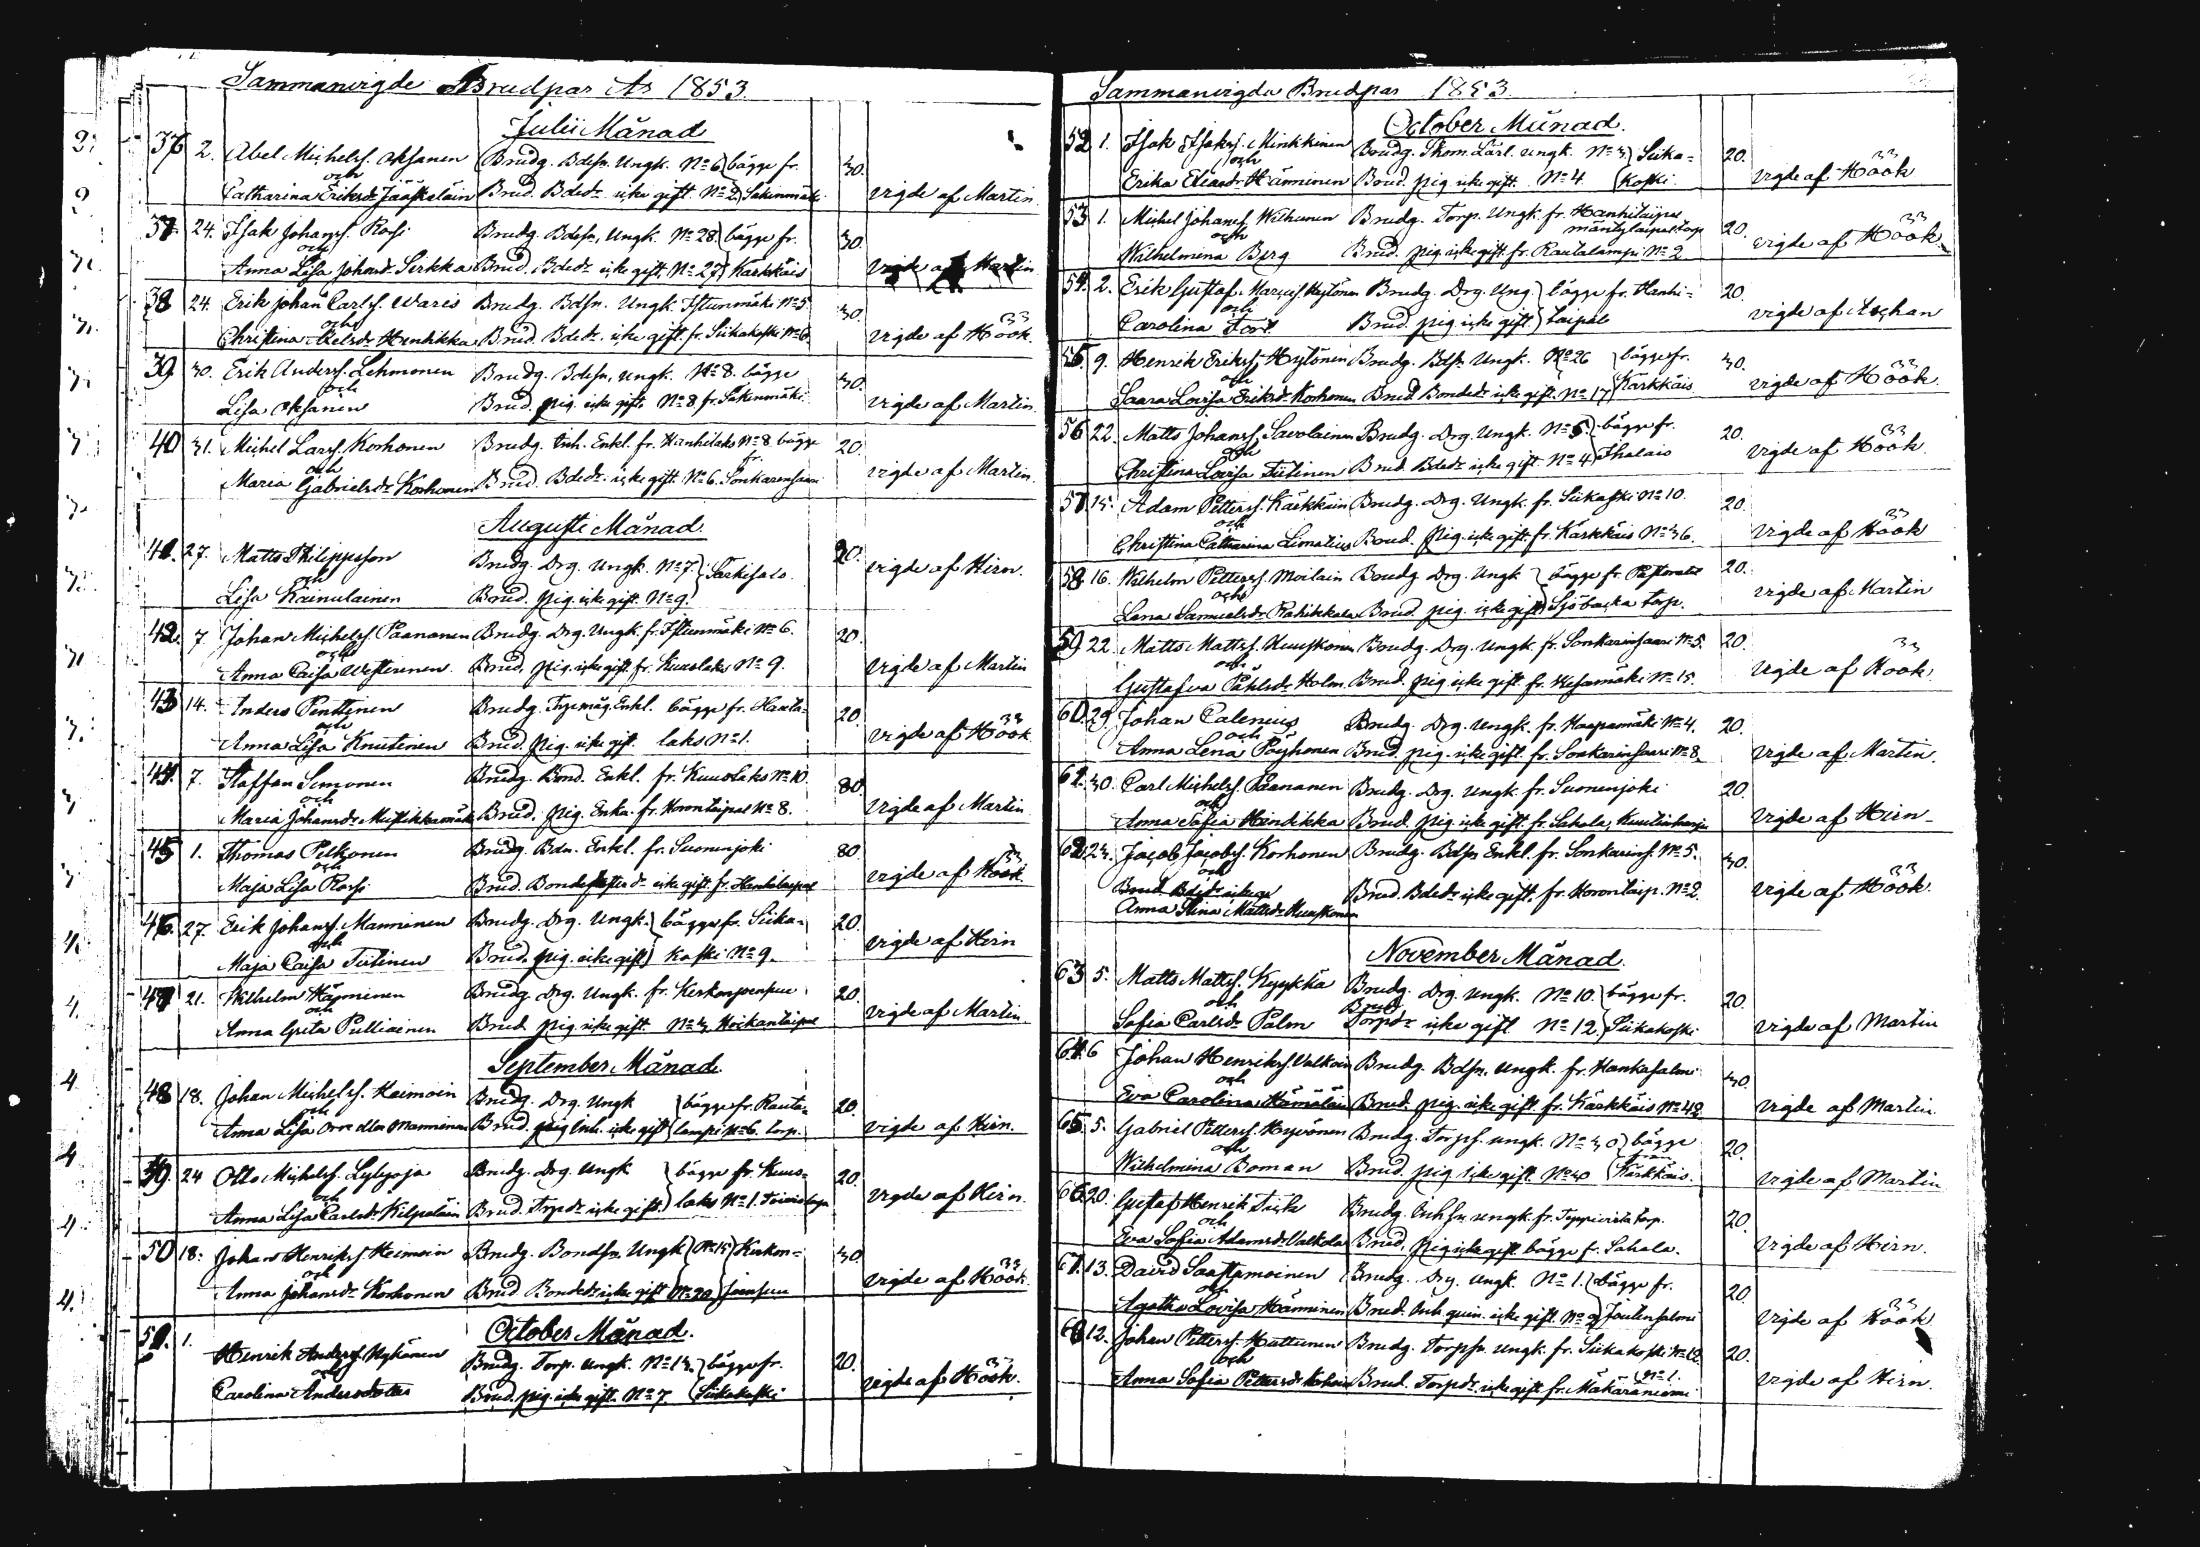 Sammanvigde Brudpar År 1853.
Julii Månad
36 2. Abel Michelss. Oksanen Brudg. Bdesn. Ungk. No 6 bägge fr. 30.
och
Catharina Eriksdr Jääskeläin Brud. Bdedr icke gift. No 2 Säkinmäki vigde af Martin.
37. 24. Isak Johanss. Rossi Brudg. Bdesn, Ungk. No 28 bägge fr. 30.
och
Anna Lisa Johansdr Sirkka Brud. Bdedr icke gift. No 27 Kärkkäis vigde af Martin
38 24. Erik Johan Carlss. Waris Brudg. Bdsn. Ungk. Istunmäki No 5 30.
och
Christina Abelsdr Hindikka Brud. Bdedr. icke gift. fr. Siikakoski No 6. vigde af Höök.
39. 30. Erik Anderss. Lehmonen Brudg. Bdesn, ungk. No 8. bägge 30.
och
Lisa Oksanen Brud. pig. icke gift. No 8 fr. Säkinmäki vigde af Martin.
40 31. Michel Larss. Korhonen Brudg. Inh. Enkl. fr. Hanhilaks No 8 bägge 20.
och fr.
Maria Gabrielsdr Korhonen Brud. Bdedr. icke gift. No 6. Sonkarinsaari vigde af Martin.
Augusti Månad.
41. 27. Matts Philippsson Brudg. Drg. Ungk. No 7. Särkisalo. 20. vigde af Hirn.
och
Lisa Kainulainen Brud. pig. icke gift. No 9.
42. 7 Johan Michelss. Paananen Brudg. Drg. Ungk. fr. Istunmäki No 6. 20.
och
Anna Caisa Westerinen. Brud. pig. icke gift. fr. Kuuslaks No 9. vigde af Martin
43 14. Anders Penttinen Brudg. Enkl. bägge fr. Hanka- 20.
och
Anna Lisa Knutinen Brud. pig. icke gift. laks No 1. vigde af Höök
44. 7. Staffan Simonen Brudg. Bond. Enkl. fr. Kuuslaks No 10. 80.
och
Maria Johansdr Brud. pig. Enka. fr. Horontaipal No 8. vigde af Martin
45 1. Thomas Pelkonen Brudg. Bdn. Enkl. fr. Suonenjoki 80
och
Maja Lisa Rossi Brud. icke gift. fr. Hanhitaipal vigde af Höök.
46. 27. Erik Johanss. Manninen Brudg. Drg. Ungk. bägge fr. Siika- 20.
och
Maja Caisa Tiitinen Brud. pig. icke gift koski No 9. vigde af Hirn
47 21. Wilhelm Hänninen Brudg. Drg. Ungk. fr. Kerkonjoensuu 20.
och
Anna Greta Pulliainen Brud. pig. icke gift. No 3. Hoikantaipal vigde af Martin
September Månad.
48 18. Johan Michelss. Heimoin Brudg. Drg. Ungk bägge fr. Rauta- 20.
och
Anna Lisa Orre eller Manninen Brud. pig. Inh. icke gift lampi No 6. torp. vigde af Hirn.
49. 24 Otto Michelss. Lylyoja Brudg. Drg. Ungk bägge fr. Kuus- 20.
och
Anna Lisa Carlsdr Kilpeläin Brud. Torpdr icke gift. laks No 1. vigde af Hirn.
50 18. Johan Henrikss. Heimoin Brudg. Bondsn, Ungk No 15 Kerkon- 30.
och
Anna Johansdr Korhonen Brud Bondedr icke gift No 20 joensuu vigde af Höök.
October Månad.
51. 1. Henrik Anderss. Nykänen Brudg. Torp. Ungk. No 13. bägge fr. 20.
och
Carolina Andersdotter Brud. pig. icke gift. No 7. Siikakoski vigde af Höök.
Sammanvigde Brudpar 1853.
October Månad.
52 1. Isak Isakss. Minkkinen Brudg. Skom. Lärl. ungk. No 3. Siika- 20.
och
Erika Eliasdr Hänninen Brud. pig icke gift. No 4 koski vigde af Höök
53 1. Michel Johanss. Wilhunen Brudg. Torp. Ungk. fr. Hanhitaipal 20.
och mäntytaipal torp
Wilhelmina Berg Brud. pig. icke gift. fr. Rautalampi No 2 vigde af Höök.
54. 2. Erik Gustaf. Marcuss. Hytönen Brudg. Drg. Ung. bägge fr. Hanhi- 20.
och
Carolina Fors Brud. pig icke gift. taipal vigde af Aschan
55. 9. Henrik Erikss. Hytönen Brudg. Bdsn. Ungk. No 26 bägge fr. 30.
och
Saara Lovisa Eriksdr Korhonen Brud Bondedr icke gift. No 17 Kärkkäis vigde af Höök.
56 22. Matts Johanss. Savolainen Brudg. Drg. Ungk. No 5. bägge fr. 20.
och
Christina Lovisa Tiitinen Brud. Bdedr icke gift. No 4 Ihalais vigde af Höök.
57. 15. Adam Petterss. Kärkkäin Brudg. Drg. Ungk. fr. Siikakoski No 10. 20.
och
Christina Catharina Limatius Brud. Pig. icke gift fr. Kärkkäis No 36. vigde af Höök
58. 16. Wilhelm Petterss. Moilain Brudg Drg. Ungk bägge fr. Pastoratet 20.
och
Lena Samuelsdr Rahikkala Brud. pig. icke gift Sjöbacka torp. vigde af Martin
59 22. Matts Mattss. Kuuskonen Brudg. Drg. Ungk. fr. Sonkarinsaari No 5. 20.
och
Gustafva Påhlsdr Holm. Brud. pig icke gift. fr. Kesämäki No 15. vigde af Höök.
60. 29. Johan Calenius Brudg. Drg. Ungk. fr. Haapamäki No 4. 20.
och
Anna Lena Pöyhonen Brud. pig. icke gift. fr. Sonkarinsaari No 8. vigde af Martin.
61. 30. Carl Michelss. Paananen Brudg. Drg. Ungk. fr. Suonenjoki 20.
och
Anna Sofia Hindikka Brud. pig. icke gift. fr. Sahala, Kuutinharju vigde af Hirn-
62. 23. Jacob Jacobss. Korhonen Brudg. Bdsn Enkl. fr. Sonkarins. No 5. 30.
och
Brud. Bdedr icke gi Brud. Bdedr icke gift. fr. Horontaip. No 2. vigde af Höök.
Anna Stina Mattsdr Kuuskonen
November Månad.
63 5. Matts Mattss. Kyykkä Brudg. Drg. Ungk. No 10. bägge fr. 20.
och Brud
Sofia Carlsdr Palm Torpdr icke gift No 12. Siikakoski vigde af Martin
64. 6 Johan Henrikss. Valkoin Brudg. Bdsn. Ungk. fr. Hankasalmi 30.
och
Eva Carolina Hämäläin Brud. pig. icke gift. fr. Kärkkäis No 42 vigde af Martin.
65. 5. Gabriel Petterss. Hyvönen Brudg. Torps. ungk. No 30 bägge 20.
och från
Wilhelmina Boman Brud. pig. icke gift. No 40 Kärkkäis. vigde af Martin
66. 20. Gustaf Henrik Tick Brudg. Inhsn ungk. fr. torp. 20.
och
Eva Sofia Adamsdr Valkola Brud. Pig. icke gift bägge fr. Sahala. vigde af Hirn.
67. 13. David Saastamoinen Brudg. Drg. Ungk. No 1. bägge fr. 20.
och
Agatha Lovisa Hänninen Brud. Inh. qvin. icke gift. No 2 Joutensalmi vigde af Höök
68 12. Johan Petterss. Hattunen Brudg. Torpsn. Ungk. fr. Siikakoski No 12. 20.
och No 1.
Anna Sofia Pettersdr Brud. Torpdr icke gift fr. Mäkäräniemi vigde af Hirn.